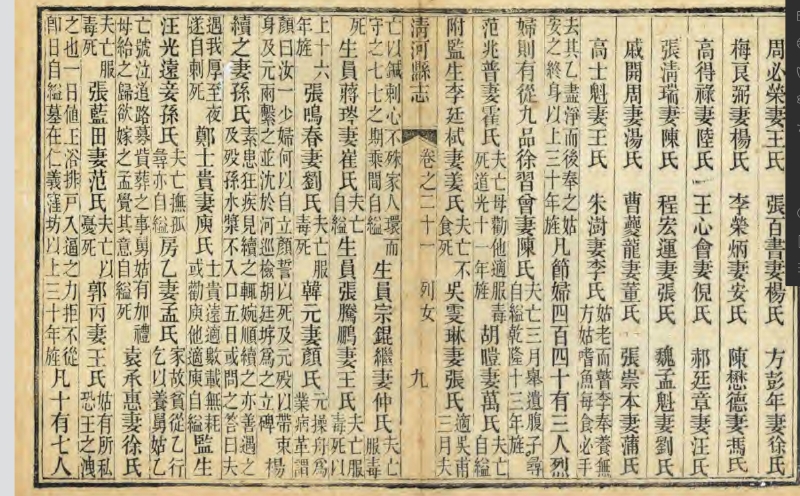 周必榮妻王氏　張百書妻楊氏　方彭年妻徐氏
梅良弼妻楊氏　李榮炳妻安氏　陳懋德妻馮氏
高得祿妻陸氏　王心會妻倪氏　郝廷章妻汪氏
張淸瑞妻陳氏　程宏運妻張氏　魏孟魁妻劉氏
戚開周妻湯氏　曹夔龍妻董氏　張崇本妻蒲氏
高士魁妻王氏　朱澍妻李氏　姑老而瞽李奉養無方姑嗜魚每食必手
去其乙盡淨而後奉之姑安之終身以上三十年旌　凡節婦四百四十有三人烈
婦則有從九品徐習曾妻陳氏　夫亡三月舉遺腹子尋自縊乾隆十三年旌
范兆普妻崔氏　夫亡母勸他適服毒死道光十一年旌　胡暟妻萬氏　夫亡自縊
附監生李廷栻妻姜氏　夫亡不食死　吳雯琳妻張氏　適吳甫三月夫
淸河縣志　卷之二十一　列女　九
亡以鍼刺心不殊家人環而守之七七之期乘間自縊　生員宗錕繼妻仲氏　夫亡服毒
死　生員蔣琇妻崔氏　夫亡自縊　生員張騰鵬妻王氏　夫亡服毒死以
上十六年旌　張鳴春妻劉氏　夫亡服毒死　韓元妻顏氏　元操舟爲業病革謂
顏曰汝一少婦何以自立顏誓以死及元歿以帶束身及元兩繫之並沈於河巡檢胡廷爲之立碑　楊
續之妻孫氏　素患狂疾見續之輒婉順續之亦善遇之及歿孫水漿不入口五日或問之答曰夫
遇我厚至夜遂自刺死　鄭士貴妻庾氏　士貴遠適數載無耗或勸庾他適庾自縊　監生
汪光遠妾孫氏　夫亡撫孤彝亦自縊　房乙妻孟氏　家故貧從乙行乞以養舅姑乙
亡號泣道路募貲葬之事舅姑有如禮母紿之歸欲嫁之孟覺其意自縊死　袁承惠妻徐氏
夫亡服毒死　張藍田妻范氏　夫亡以憂死　郭丙妻王氏　姑有所私恐王之洩
之也一日值王浴排戶入逼之力拒不從卽日自縊墓在仁義窪坊以上三十年旌　凡十有七人